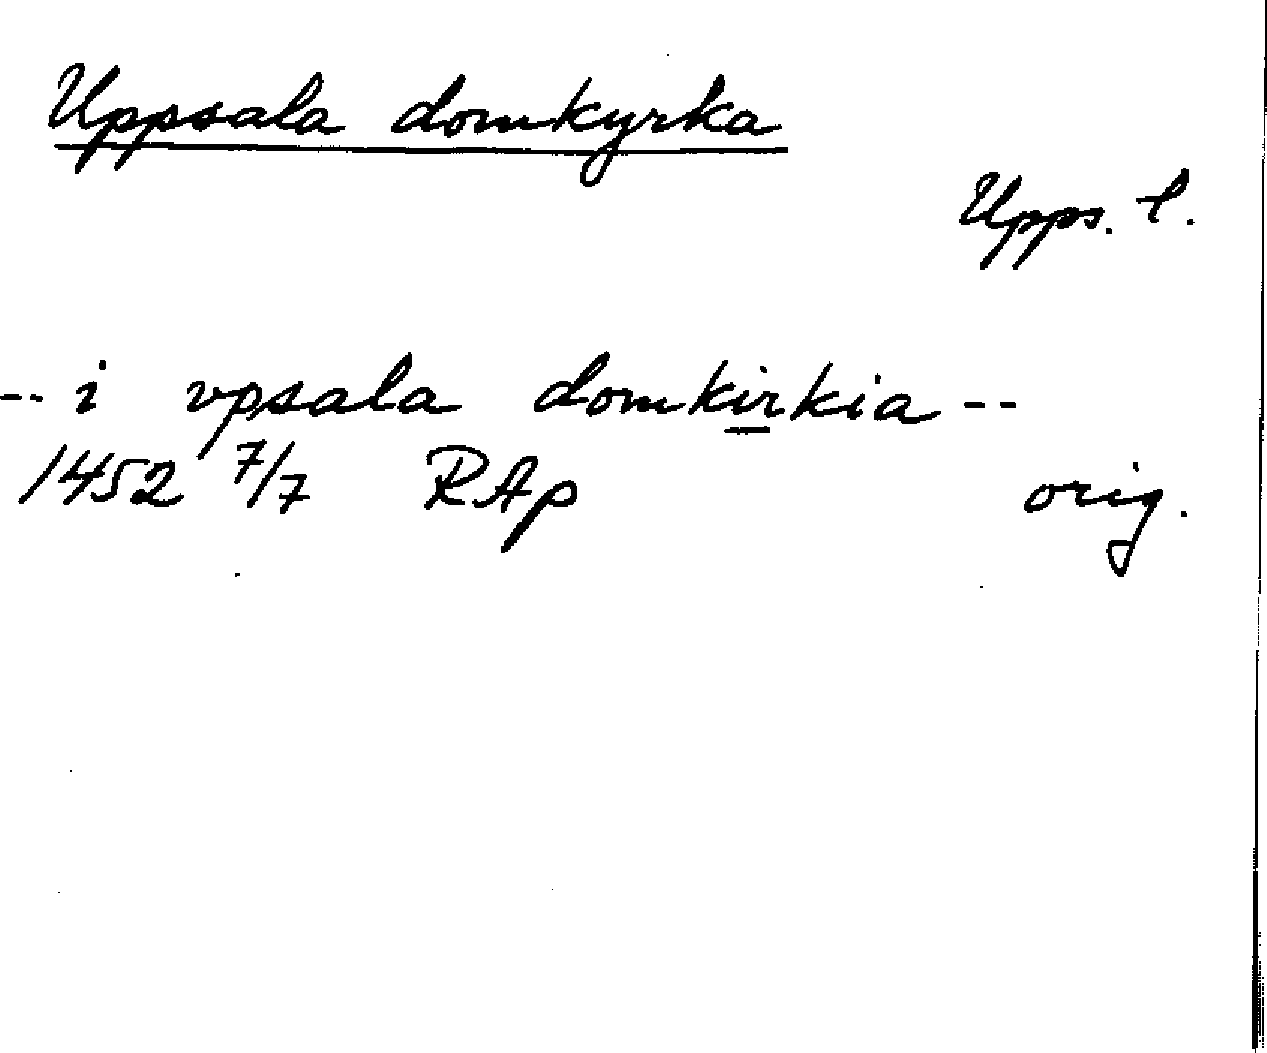 Uppsala domkyrka
Upps. l.
-- i vpsala domkirkia --
1452 7/7 RAp orig.